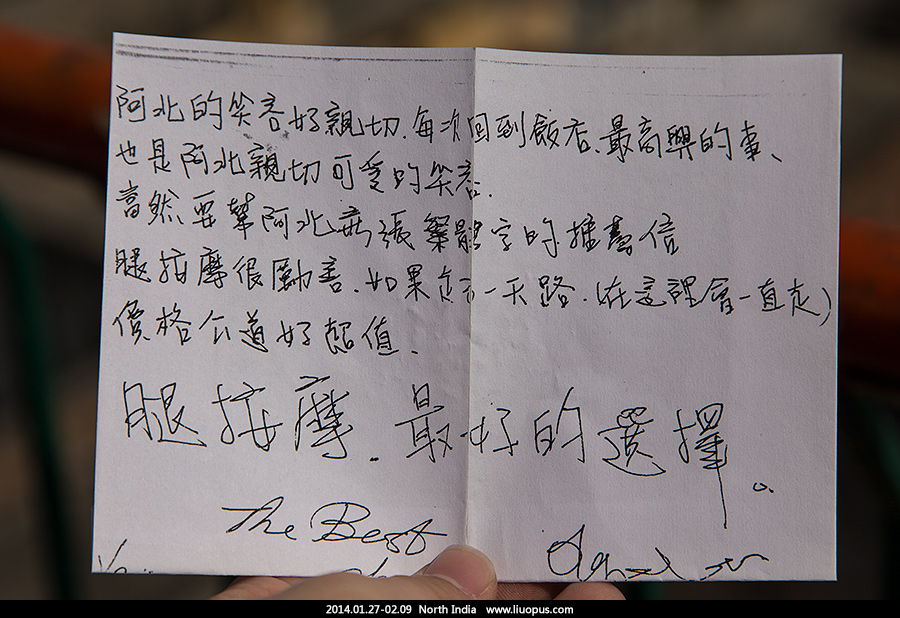 阿北的笑容好親切．每次回到飯店、最高興的事、
也是阿北親切可愛的笑容．
當然要幫阿北 張繁體字的推薦信
腿按摩很勵害．如果走了一天路．(在這裡會一直走)
價格公道好超值．
腿按摩．最好的選擇。
The Best
2014.01.27-02.09 North India www.liuopus.com